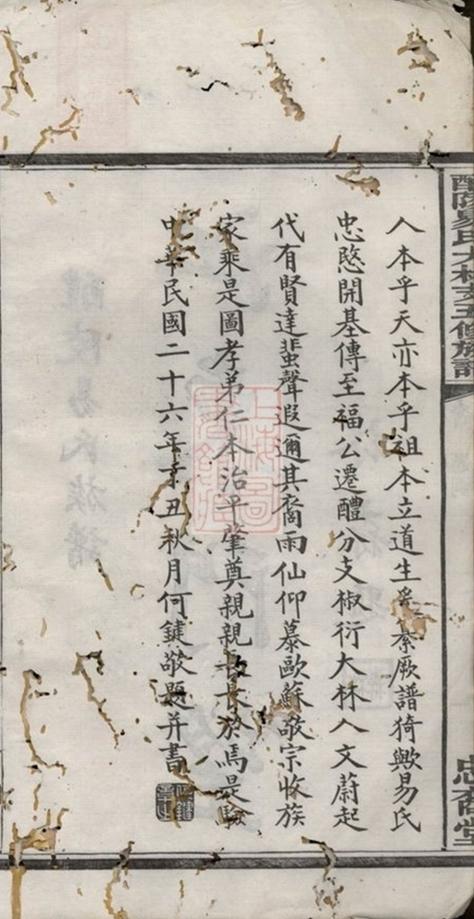 醴陵易氏大林支五修族譜
忠裔堂
人本乎天亦本乎祖本立道生爰纂厥譜猗歟易氏
忠愍開基傳至福公遷醴分支椒衍大林人文蔚起
代有賢達蜚聲遐邇其裔雨仙仰慕歐蘇敬宗收族
家乘是圖孝弟仁本治平肇奠親親長長於焉是驗
中華民國二十六年丑秋月何鍵敬題并書